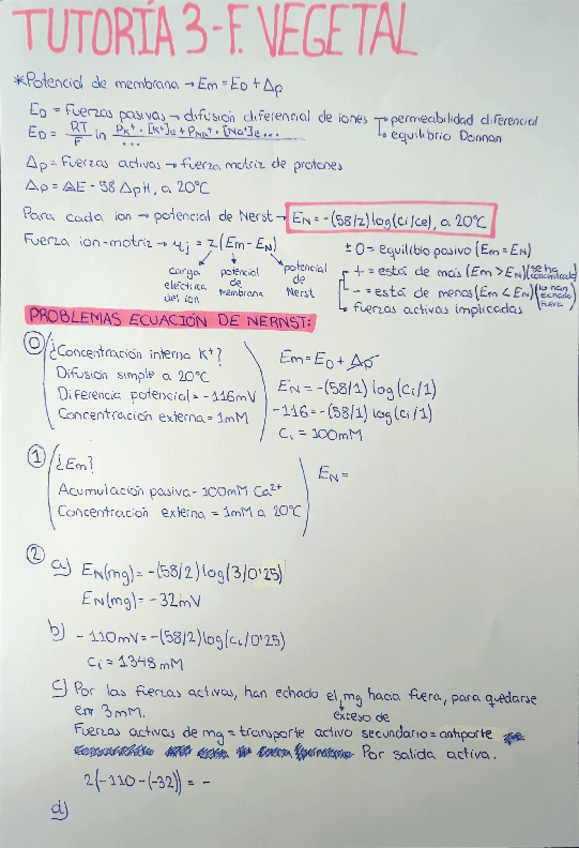 TUTORÍA 3-F. VEGETAL
*Potencial de membrana → Em = ED + Δp
ED = Fuerzas pasivas → difusión diferencial de iones → permeabilidad diferencial
→ equilibrio Donnan
ED = RT/F ln PK+ · [K+]e + PNa+ · [Na+]e ... / ...
Δp = Fuerzas activas → fuerza motriz de protones
Δp = ΔE - 58 ΔpH, a 20°C
Para cada ion → potencial de Nerst → EN = -(58/z) log (Ci/Ce), a 20°C
Fuerza ion-motriz → μj = z (Em - EN)
carga eléctrica del ion
potencial de membrana
potencial de Nerst
± 0 = equilibio pasivo (Em = EN)
+ = está de más (Em > EN) (se ha concentrado)
- = está de menos (Em < EN) (lo han echado fuera)
fuerzas activas implicadas
PROBLEMAS ECUACIÓN DE NERNST:
0 ¿Concentración interna K+?
Difusión simple a 20°C
Diferencia potencial = -116mV
Concentración externa = 1mM
Em = ED + Δp
EN = -(58/1) log (Ci/1)
-116 = -(58/1) log (Ci/1)
Ci = 100mM
1 ¿Em?
Acumulación pasiva - 100mM Ca2+
Concentración externa = 1mM a 20°C
EN =
2
a) EN(mg) = -(58/2) log (3/0'25)
EN(mg) = -32mV
b) -110mV = -(58/2) log (Ci/0'25)
Ci = 1348 mM
c) Por las fuerzas activas, han echado el mg hacia fuera, para quedarse
exceso de
en 3mM.
Fuerzas activas de mg = transporte activo secundario = antiporte
Por salida activa.
2(-110-(-32)) = -
d)